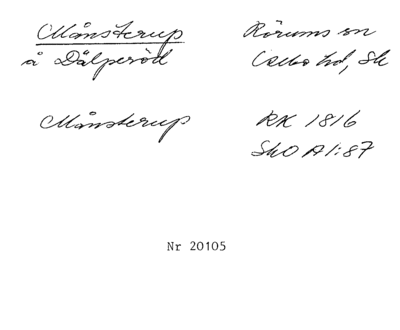 Månsterup Rörums sn
å Dålperöd Albo hd, Sk
Månsterup RK 1816
SkO A1:87
Nr 20105